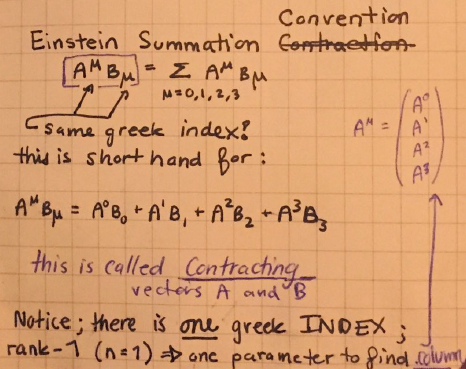 Convention
Einstein Summation Contraction
A^μ B_μ = Σ A^μ B_μ
μ=0,1,2,3
same greek index?
this is shorthand for:
A^μ = (A^0
A^1
A^2
A^3)
A^μ B_μ = A^0 B_0 + A^1 B_1 + A^2 B_2 + A^3 B_3
this is called Contracting
vectors A and B
Notice; there is one greek INDEX;
rank-1 (n=1) ⇒ one parameter to find column